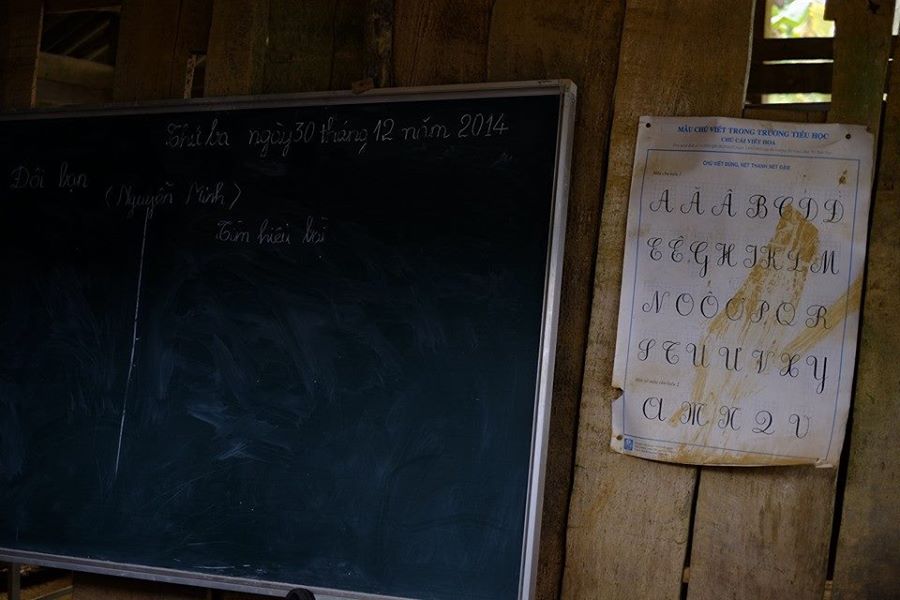 Thứ ba ngày 30 tháng 12 năm 2014
Đôi bạn
(Nguyễn Minh)
Tìm hiểu bài
MẪU CHỮ VIẾT TRONG TRƯỜNG TIỂU HỌC
CHỮ CÁI VIẾT HOA
CHỮ VIẾT ĐỨNG, NÉT THANH NÉT ĐẬM
A Ă Â B C D Đ
E Ê G H I K L M
N O Ô Ơ P Q R
S T U Ư V X Y
A M N Q V